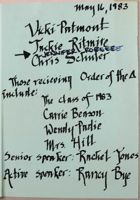 May 16, 1983
Vicki Patmont
Jackie Ritmire
Chris Schuler
Those recieving Order of the Δ
include:
The class of 1983
Carrie Benson
Wendy Padie
Mrs. Hill
Senior speaker: Rachel Yones
Active speaker: Rancy Bye